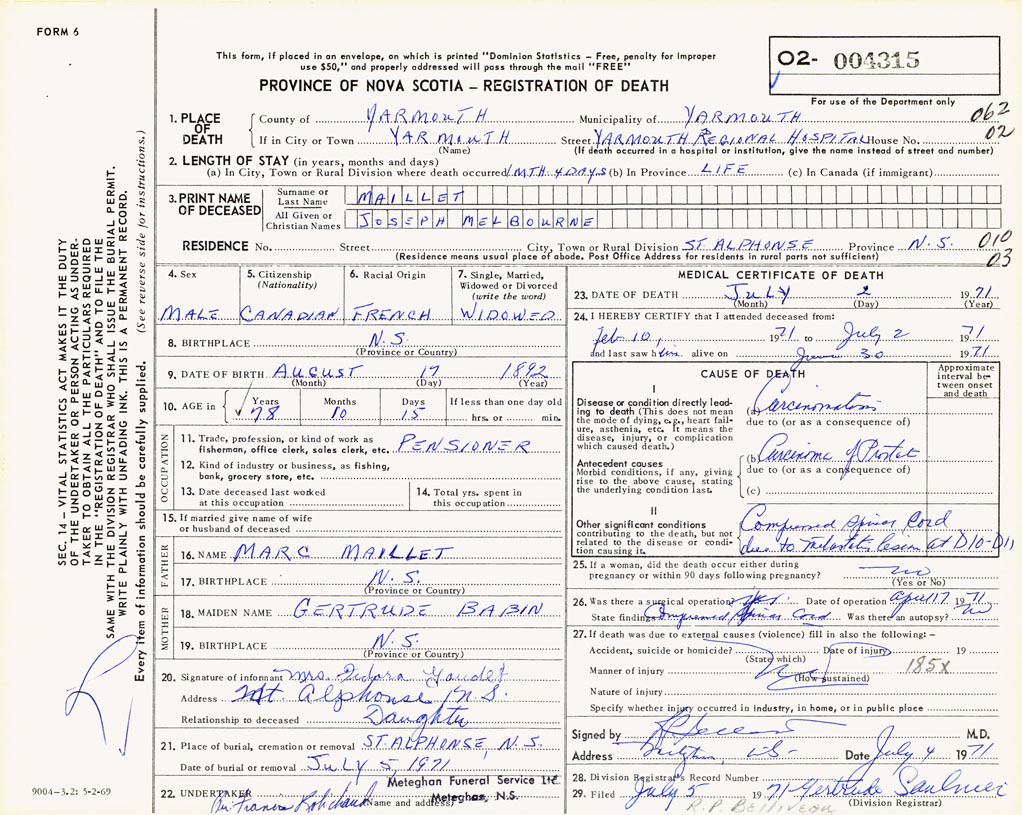 FORM 6
This form, if placed in an envelope, on which is printed "Dominion Statistics – Free, penalty for improper
use $50," and properly addressed will pass through the mail "FREE"
PROVINCE OF NOVA SCOTIA – REGISTRATION OF DEATH
02- 004315
For use of the Department only
062
02
1. PLACE OF DEATH
County of YARMOUTH Municipality of YARMOUTH
If in City or Town YARMOUTH Street YARMOUTH REGIONAL HOSPITAL House No.
(Name) (If death occurred in a hospital or institution, give the name instead of street and number)
2. LENGTH OF STAY (in years, months and days)
(a) In City, Town or Rural Division where death occurred 1 MTH 4 DAYS (b) In Province LIFE (c) In Canada (if immigrant)
3. PRINT NAME OF DECEASED
Surname or Last Name MAILLET
All Given or Christian Names JOSEPH MELBOURNE
RESIDENCE No. Street City, Town or Rural Division ST. ALPHONSE Province N.S. 010
(Residence means usual place of abode. Post Office Address for residents in rural parts not sufficient) 03
4. Sex
MALE
5. Citizenship (Nationality)
CANADIAN
6. Racial Origin
FRENCH
7. Single, Married, Widowed or Divorced (write the word)
WIDOWED
8. BIRTHPLACE N.S.
(Province or Country)
9. DATE OF BIRTH AUGUST 17 1892
(Month) (Day) (Year)
10. AGE in Years Months Days If less than one day old
78 10 15 hrs. or min.
OCCUPATION
11. Trade, profession, or kind of work as
fisherman, office clerk, sales clerk, etc. PENSIONER
12. Kind of industry or business, as fishing,
bank, grocery store, etc.
13. Date deceased last worked
at this occupation
14. Total yrs. spent in
this occupation
15. If married give name of wife
or husband of deceased
FATHER
16. NAME MARC MAILLET
17. BIRTHPLACE N.S.
(Province or Country)
MOTHER
18. MAIDEN NAME GERTRUDE BABIN
19. BIRTHPLACE N.S.
(Province or Country)
20. Signature of informant Mrs. Gaudet
Address St Alphonse N.S.
Relationship to deceased Daughter
21. Place of burial, cremation or removal ST. ALPHONSE, N.S.
Date of burial or removal JULY 5, 1971
Meteghan Funeral Service Ltd.
Meteghan, N.S.
22. UNDERTAKER Francis Robichaud
Name and address)
MEDICAL CERTIFICATE OF DEATH
23. DATE OF DEATH JULY 2 1971
(Month) (Day) (Year)
24. I HEREBY CERTIFY that I attended deceased from:
Feb 10, 1971 to July 2 1971
and last saw him alive on June 30 1971
CAUSE OF DEATH
Approximate interval between onset and death
I
Disease or condition directly leading to death (This does not mean
the mode of dying, e.g., heart failure, asthenia, etc. It means the
disease, injury, or complication
which caused death.)
(a) Carcinomatosis
due to (or as a consequence of)
Antecedent causes
Morbid conditions, if any, giving
rise to the above cause, stating
the underlying condition last.
(b) Carcinoma of Prostate
due to (or as a consequence of)
(c)
II
Other significant conditions
contributing to the death, but not
related to the disease or condition causing it.
Compressed Spinal Cord
due to metastatic lesion at D10-D11
25. If a woman, did the death occur either during
pregnancy or within 90 days following pregnancy? no
(Yes or No)
26. Was there a surgical operation? Yes Date of operation April 17 1971
State findings Compressed Spinal Cord Was there an autopsy? No
27. If death was due to external causes (violence) fill in also the following: –
Accident, suicide or homicide? Date of injury 19
(State which)
Manner of injury 185X
(How sustained)
Nature of injury
Specify whether injury occurred in industry, in home, or in public place
Signed by M.D.
Address N.S. Date July 4 1971
28. Division Registrar's Record Number
29. Filed July 5 1971 Gertrude Saulnier
R.P. Belliveau (Division Registrar)
SEC. 14 – VITAL STATISTICS ACT MAKES IT THE DUTY
OF THE UNDERTAKER OR PERSON ACTING AS UNDER-
TAKER TO OBTAIN ALL THE PARTICULARS REQUIRED
IN THE "REGISTRATION OF DEATH" AND TO FILE THE
SAME WITH THE DIVISION REGISTRAR WHO SHALL ISSUE THE BURIAL PERMIT.
WRITE PLAINLY WITH UNFADING INK. THIS IS A PERMANENT RECORD.
Every item of information should be carefully supplied. (See reverse side for instructions.)
9004-3.2: 5-2-69